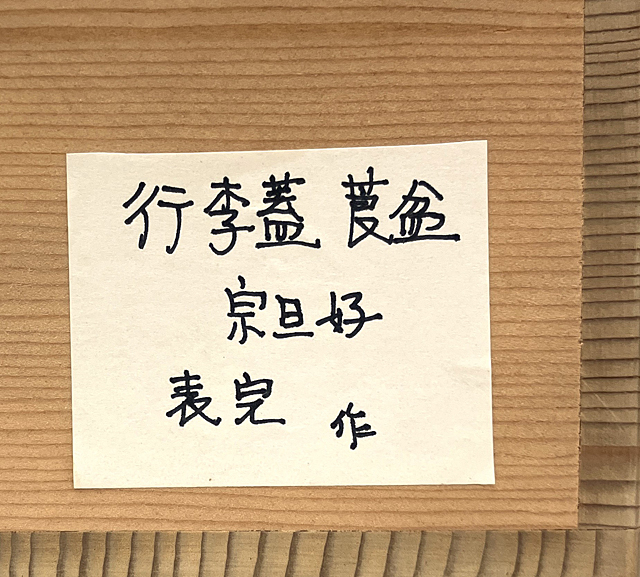 行李蓋 莨盆
宗旦好
表完 作